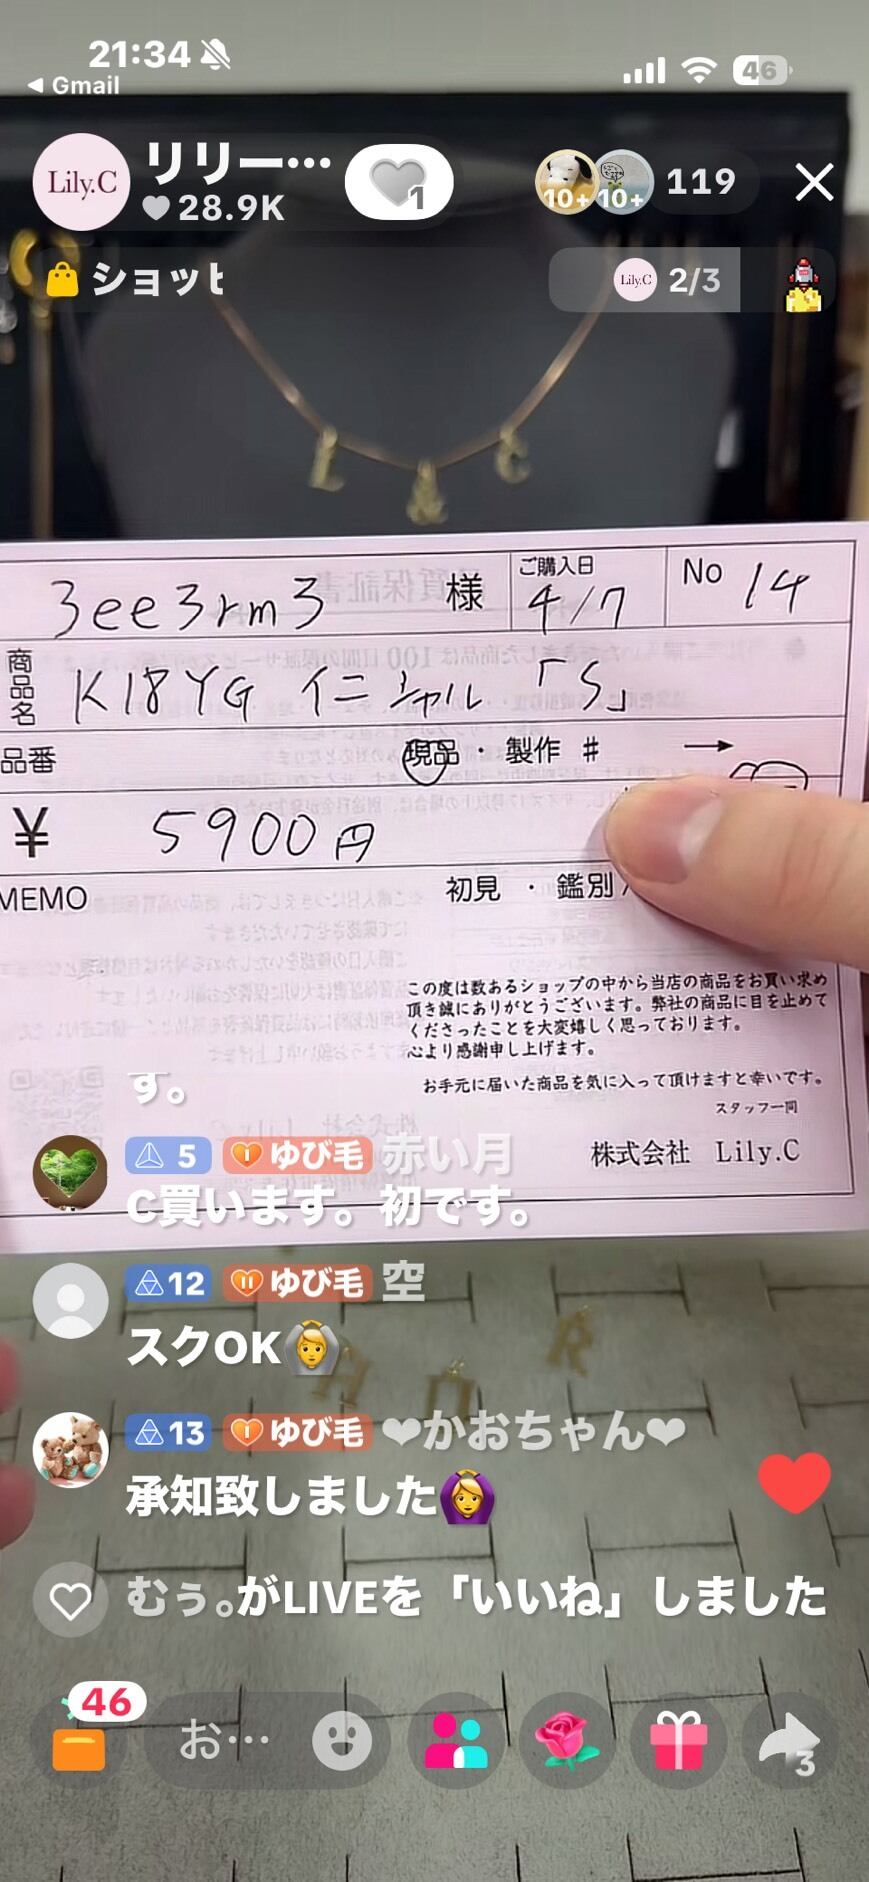 21:34
46
◀ Gmail
Lily.C
リリー…
1
28.9K
10+
10+
119
ショッピ
Lily.C
2/3
3ee3rm3 様
ご購入日
4/7
No 14
商品名
K18YG イニシャル 「S」
品番
現品・製作 # →
¥ 5900円
MEMO
初見 ・ 鑑別
この度は数あるショップの中から当店の商品をお買い求め
頂き誠にありがとうございます。弊社の商品に目を止めて
くださったことを大変嬉しく思っております。
心より感謝申し上げます。
お手元に届いた商品を気に入って頂けますと幸いです。
スタッフ一同
株式会社 Lily.C
す。
5 I ゆび毛 赤い月
C買います。初です。
12 II ゆび毛 空
スクOK🙆
13 I ゆび毛 ❤かおちゃん❤
承知致しました🙆‍♀️
むぅ。がLIVEを「いいね」しました
46
お…
3